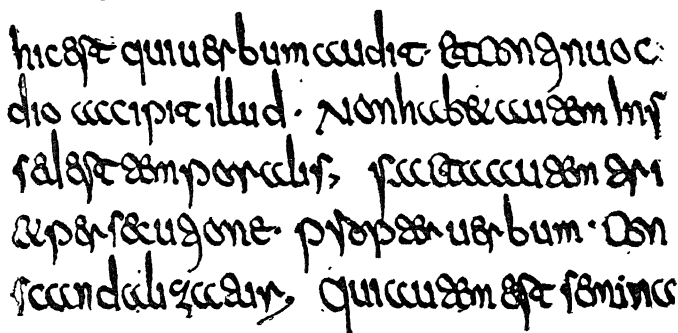 hic est qui uerbum audit· et continuo c
dio accipit illud· Non hab& autem In s
sed est temporalis, facta autem tri
& persecutione· propter uerbum· Con
scandalizatur, Qui autem est semina